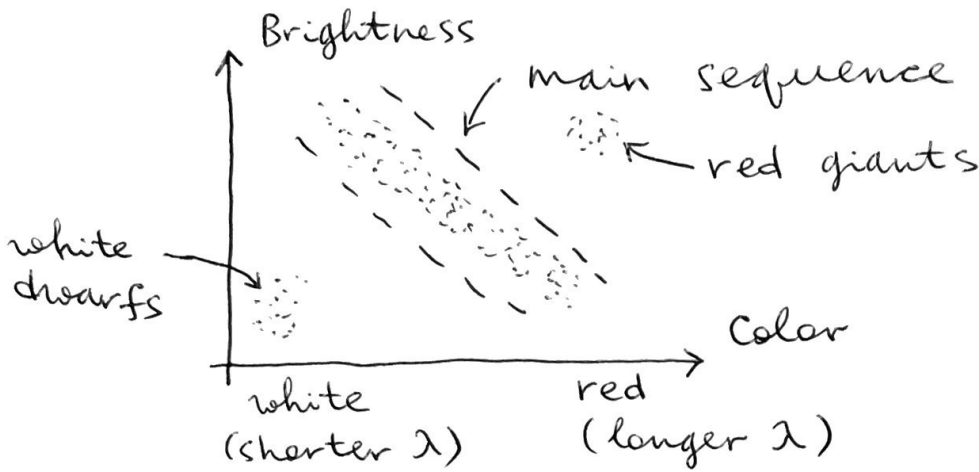 Brightness
main sequence
red giants
white
dwarfs
Color
white
(shorter λ)
red
(longer λ)